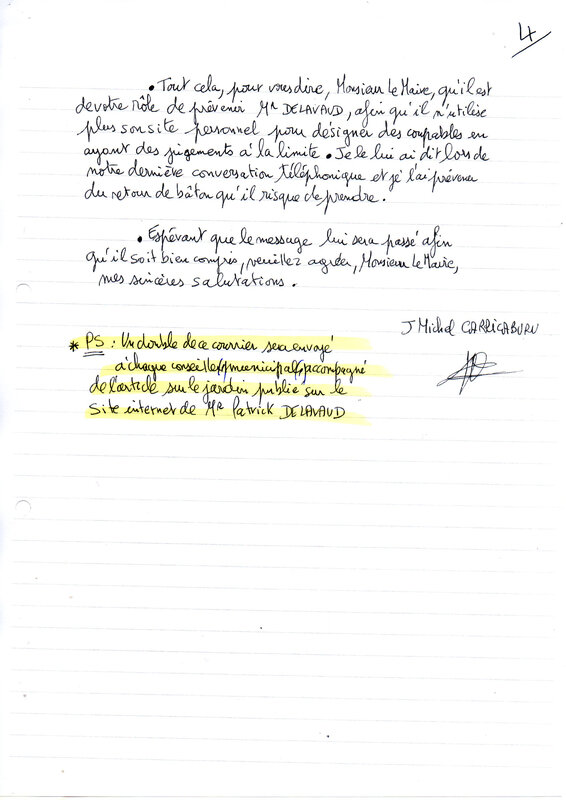 4
• Tout cela, pour vous dire, Monsieur le Maire, qu'il est
de votre rôle de prévenir Mr DELAVAUD, afin qu'il n'utilise
plus son site personnel pour désigner des coupables en
ayant des jugements à la limite • Je le lui ai dit lors de
notre dernière conversation téléphonique et je l'ai prévenu
du retour de bâton qu'il risque de prendre.
• Espérant que le message lui sera passé afin
qu'il soit bien compris, veuillez agréer, Monsieur Le Maire,
mes sincères salutations.
J Michel CARRICABURU
* PS : Un double de ce courrier sera envoyé
à chaque conseiller municipal accompagné
de l'article sur le jardin public sur le
Site internet de Mr Patrick DELAVAUD